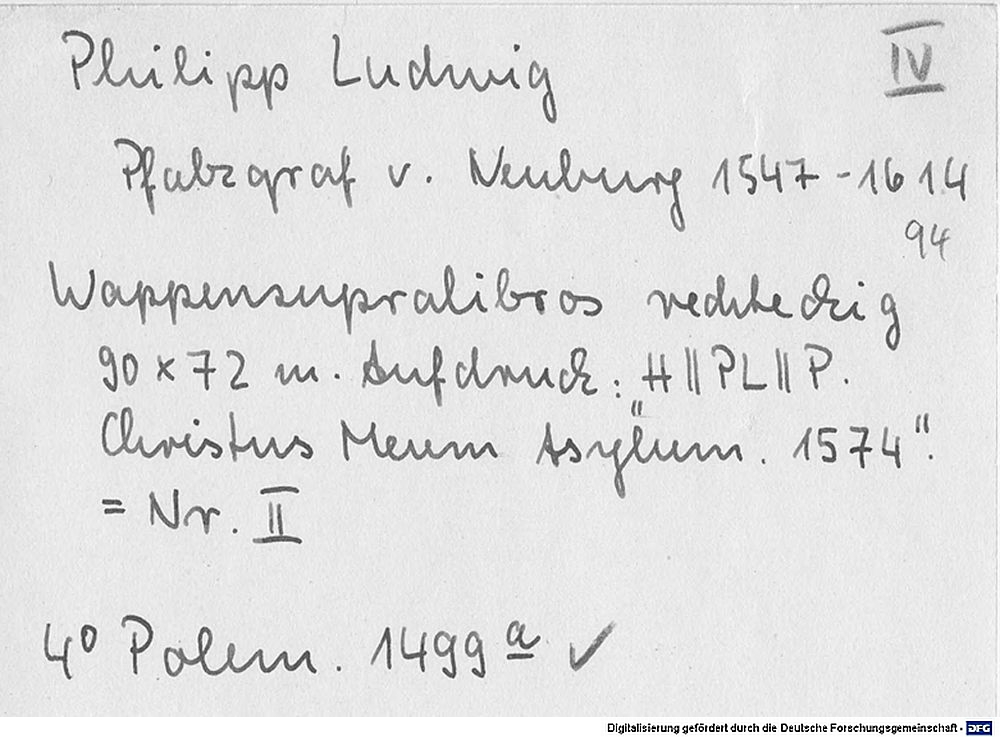 Philipp Ludwig IV
Pfalzgraf v. Neuburg 1547-1614
94
Wappensupralibros rechteckig
90 x 72 m. Aufdruck: H || PL || P.
Christus Meum Asÿlum. 1574".
= Nr. II
4° Polem. 1499 a ✓
Digitalisierung gefördert durch die Deutsche Forschungsgemeinschaft - DFG